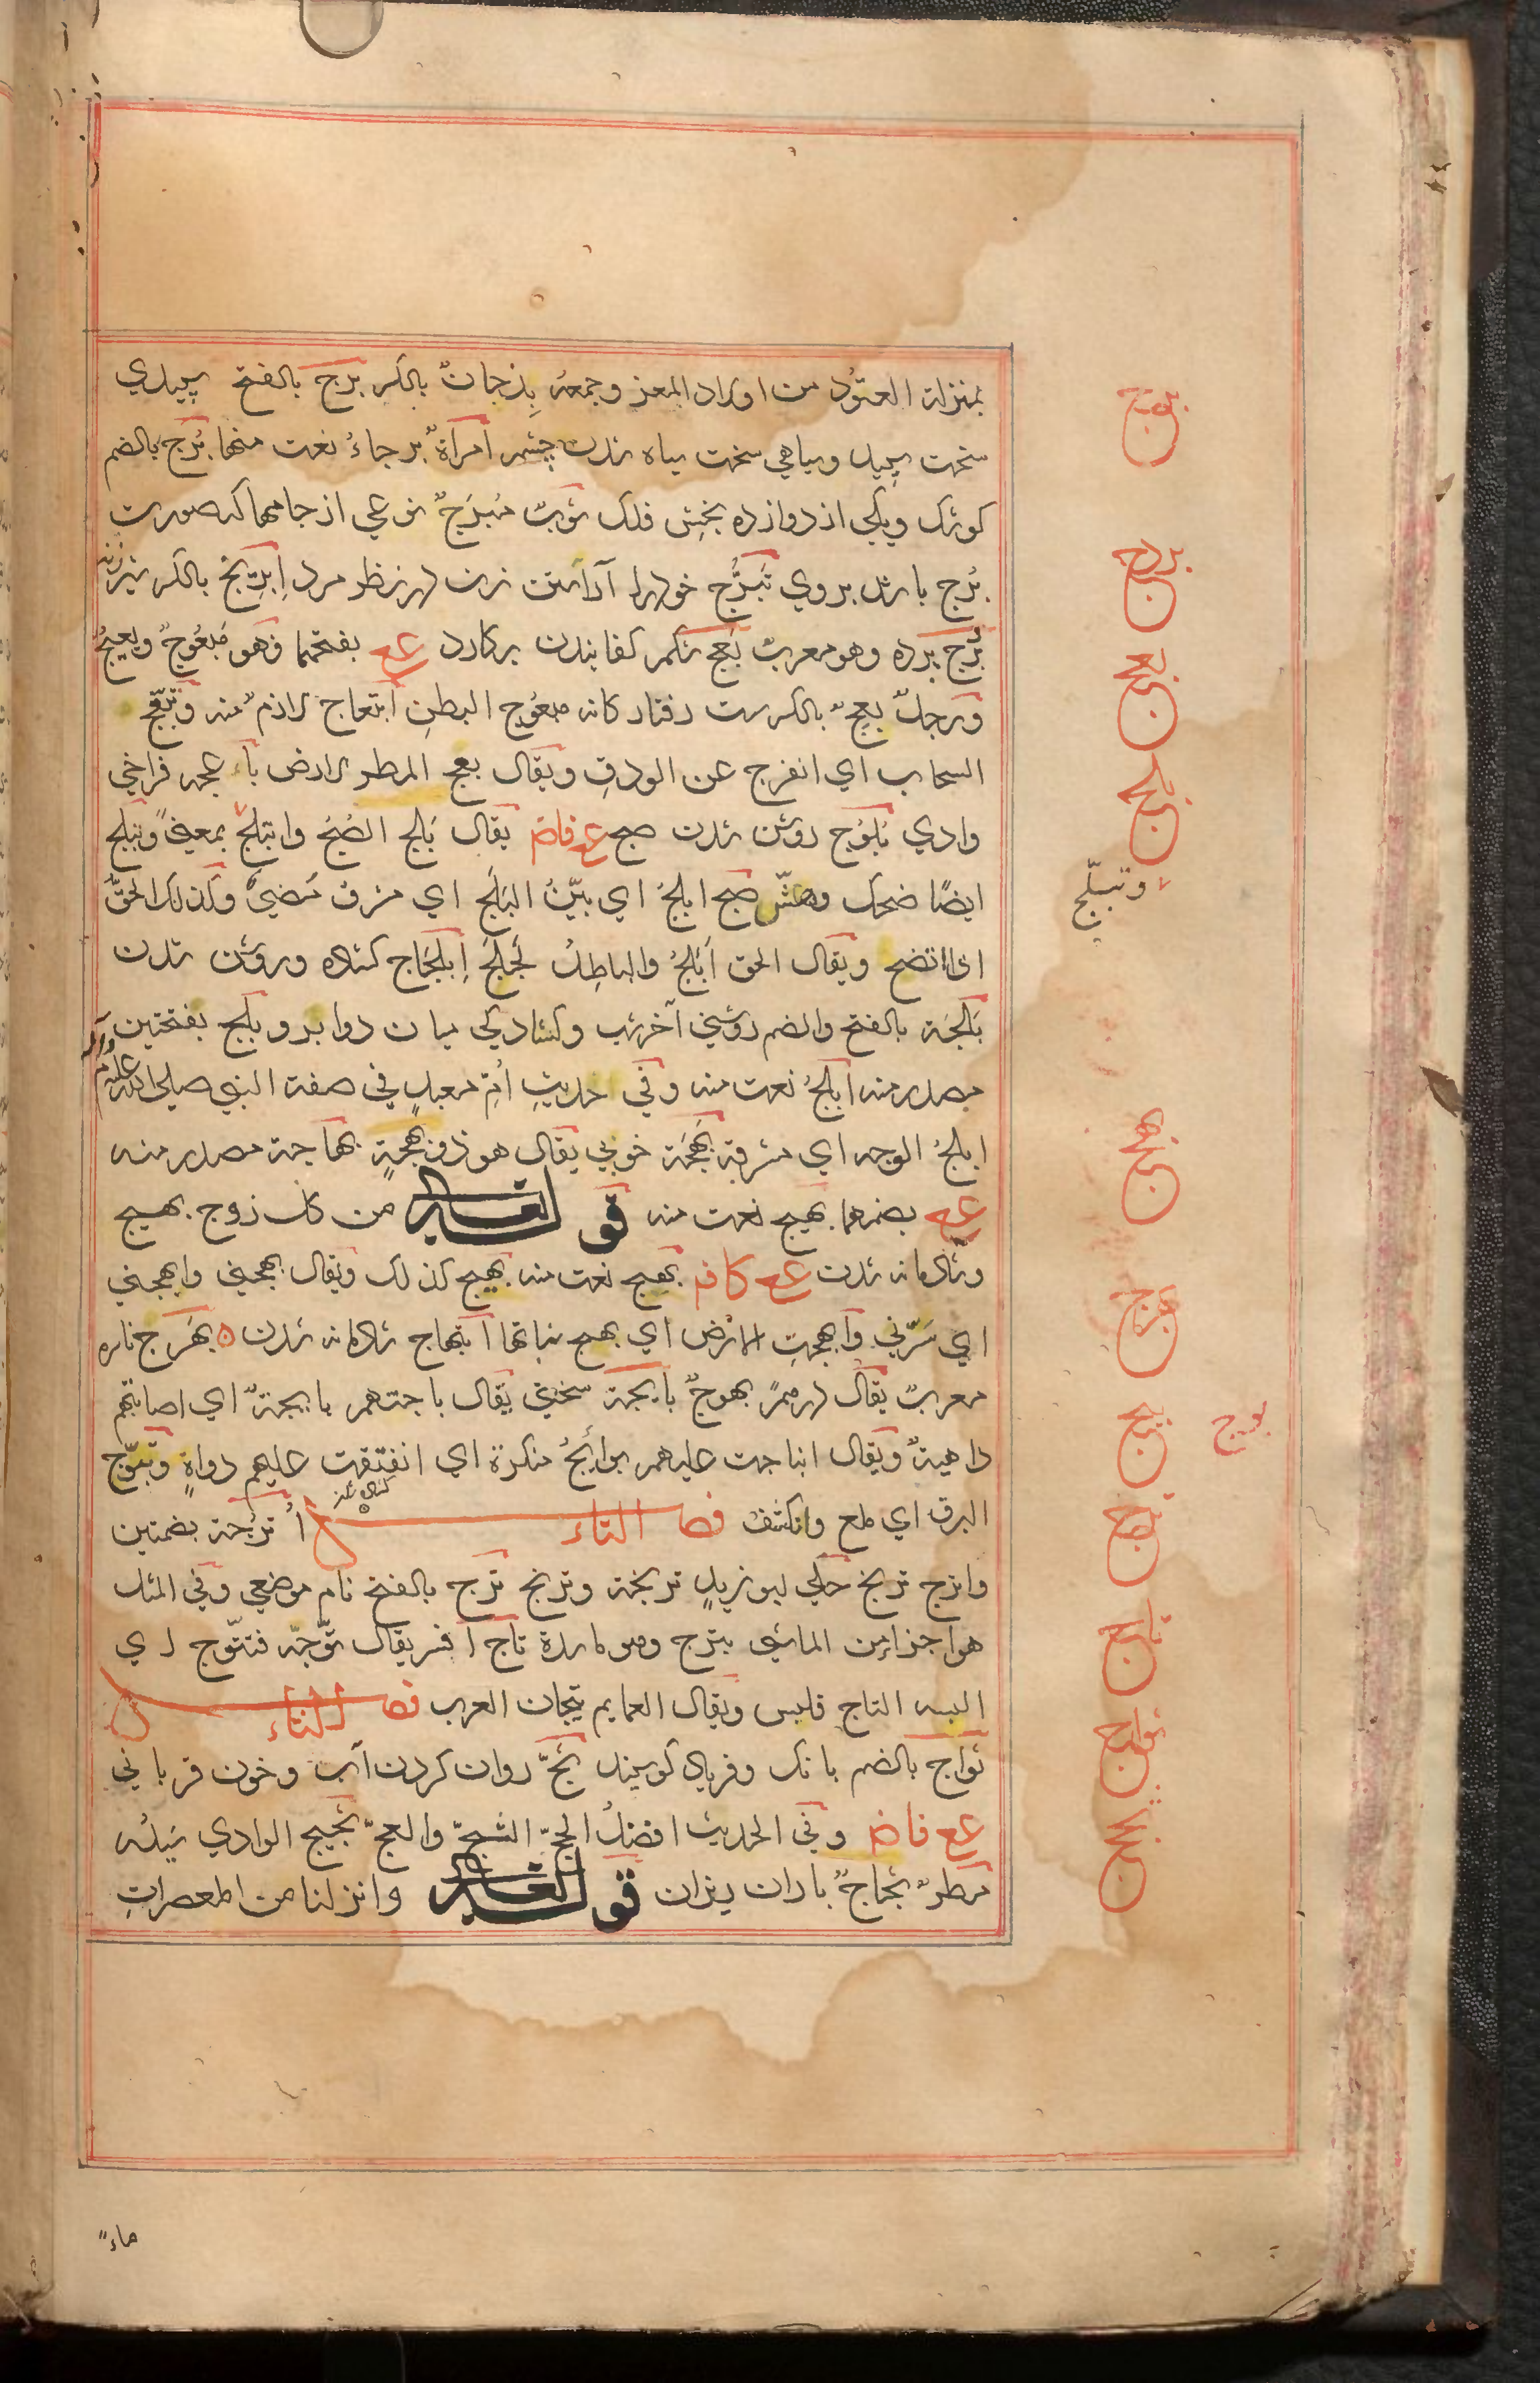 بمنزلة العتود من اولاد المعز وجمعه بذجان بالكسر برج بالفتح سپیدی
سخت سپید وسیاهی سخت سیاه شدن چشم امرأة برجاء نعت منها برج بالضم
كوشك ویکی از دوازده بخش فلك ثوب مبرج نوعی از جامها که صورت
برج باشد بروی تبرج خود را آراستن زن در نظر مرد ابریج بالكسر شیر زنه
بردج برده وهو معرب بعج شكم كفانیدن بركارد ع بفتحهما فهو مبعوج وبعیج
ورجل بعج بالكسر ست رفتار كانه مبعوج البطن ابتعاج لازم منه وتبعج
السحاب اي انفرج عن الودق ويقال بعج المطر الارض باعجه فراخی
وادی بلوج روشن شدن صبح ع فاض يقال بلج الصبح وابتلج بمعنى وتبلج
ايضا ضحك وهش صبح ابلج اي بين البلج اي مشرق مضيء وكذلك الحق
اذا اتضح ويقال الحق ابلج والباطل لجلج ابلجاج كشاده وروشن شدن
بلجة بالفتح والضم روشنی آخر شب وكشادگی میان دو ابرو بلج بفتحتین
مصدر منه ابلج نعت منه وفي حديث ام معبد في صفة النبي صلى الله عليه وآله
ابلج الوجه اي مشرقه بهجة خوبی يقال هو ذو بهجة بهاجة مصدر منه
ع بضمهما بهيج نعت منه قوله تعالى من كل زوج بهيج
وشادمانه شدن ع كاف بهج نعت منه بهيج كذلك ويقال بهجني وابهجني
اي سرني وابهجت الارض اي بهج نباتها ابتهاج شادمانه شدن بهرج ناسره
معرب يقال درهم بهرج بايجة سختی يقال باجتهم بايجة اي اصابتهم
داهية ويقال انباجت عليهم بوائج منكرة اي انفتقت عليهم دواه وتبوج
البرق اي لمع وانكشف فصل التاء اترجة بضمتین
واترج ترنج حكى ابو زيد ترنجة وترنج ترج بالفتح نام موضعی وفي المثل
هو اجرأ من الماشي بترج وهو ماسدة تاج افسر يقال توجه فتتوج اي
البسه التاج فلبس ويقال العمايم تيجان العرب فصل الثاء
ثؤاج بالضم بانك وفریاد كوسپند ثج روان كردن آب وخون قربانی
ع فاض وفي الحديث افضل الحج الثج والعج ثجيج الوادي سيله
مطر ثجاج باران ریزان قوله تعالى وانزلنا من المعصرات
ماء
برج
بردج
بعج
بلج
وتبلج
بهج
بهرج
بيج
بوج
ترج
تاج
ثواج
ثج